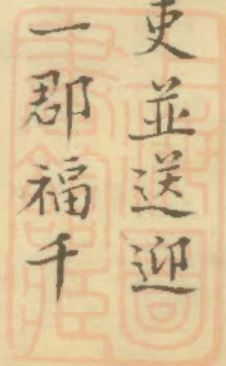 吏並送迎
一郡福千